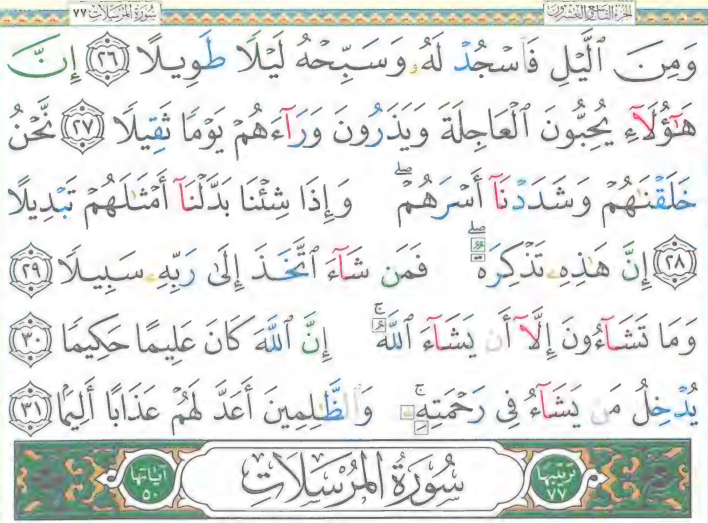 الجزء التاسع والعشرون سورة المرسلات ٧٧
وَمِنَ ٱلَّيْلِ فَٱسْجُدْ لَهُۥ وَسَبِّحْهُ لَيْلًا طَوِيلًا ٢٦ إِنَّ
هَٰٓؤُلَآءِ يُحِبُّونَ ٱلْعَاجِلَةَ وَيَذَرُونَ وَرَآءَهُمْ يَوْمًا ثَقِيلًا ٢٧ نَّحْنُ
خَلَقْنَٰهُمْ وَشَدَدْنَآ أَسْرَهُمْ ۖ وَإِذَا شِئْنَا بَدَّلْنَآ أَمْثَٰلَهُمْ تَبْدِيلًا
٢٨ إِنَّ هَٰذِهِۦ تَذْكِرَةٌ ۖ فَمَن شَآءَ ٱتَّخَذَ إِلَىٰ رَبِّهِۦ سَبِيلًا ٢٩
وَمَا تَشَآءُونَ إِلَّآ أَن يَشَآءَ ٱللَّهُ ۚ إِنَّ ٱللَّهَ كَانَ عَلِيمًا حَكِيمًا ٣٠
يُدْخِلُ مَن يَشَآءُ فِى رَحْمَتِهِۦ ۚ وَٱلظَّٰلِمِينَ أَعَدَّ لَهُمْ عَذَابًا أَلِيمًۢا ٣١
ترتيبها ٧٧ سُورَةُ الْمُرْسَلَاتِ آياتها ٥٠